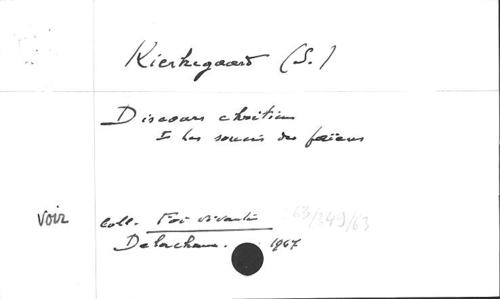 Kierkegaard (S.)
Discours chrétiens
I Les soucis des païens
voir coll. Foi vivante 63/349/63
Delachaux. 1967